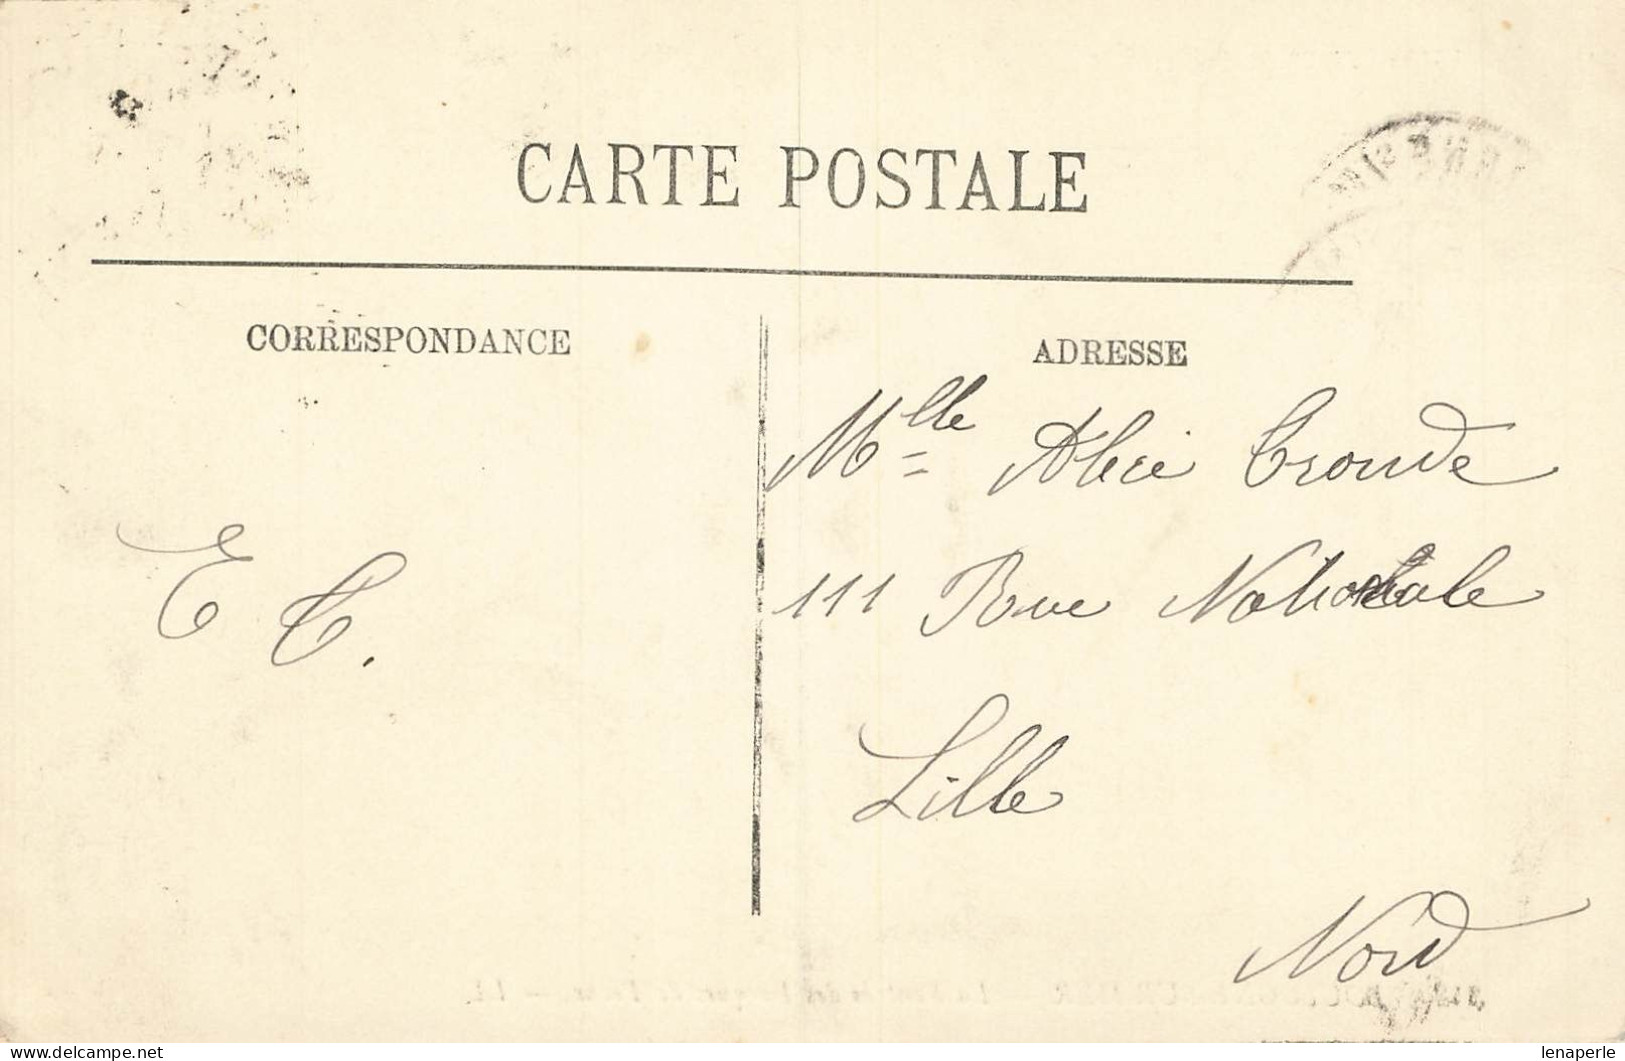 CARTE POSTALE
CORRESPONDANCE
ADRESSE
Mlle Alice
111 Rue Nationale
Lille
Nord
E C.
delcampe.net
lenaperle